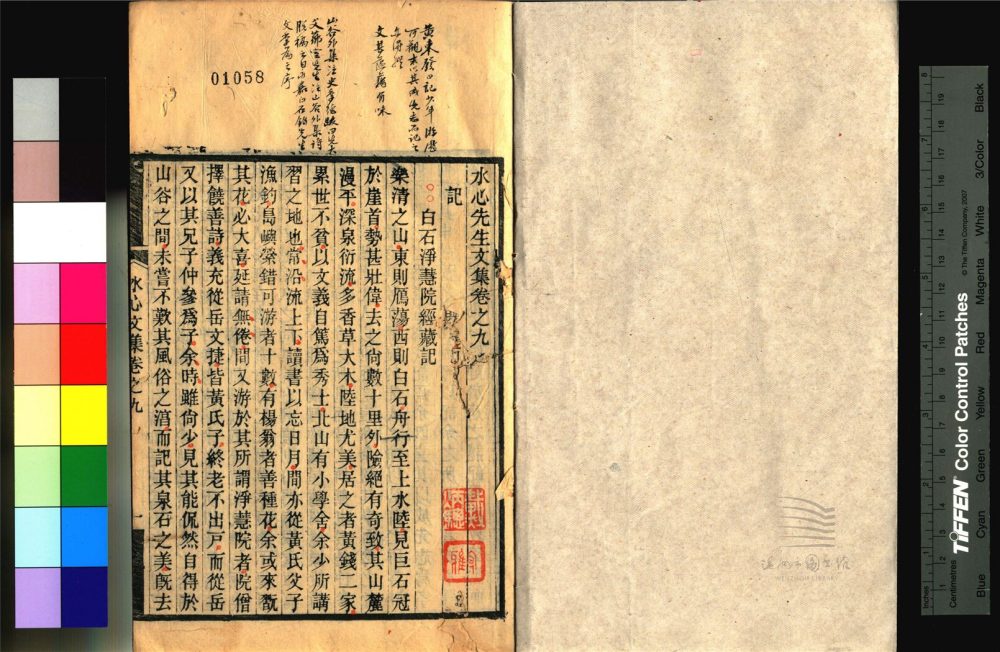 水心先生文集卷之九
記
○○白石淨慧院經藏記
樂清之山東則鴈蕩西則白石舟行至上水陸見巨石冠
於崖首勢甚壯偉去之尙數十里外險絕有奇致其山麓
漫平深泉衍流多香草大木陸地尤美居之者黃錢二家
累世不貧以文義自篤爲秀士北山有小學舍余少所講
習之地也常沿流上下讀書以忘日月間亦從黃氏父子
漁釣島嶼縈錯可游者十數有楊翁者善種花余或來翫
其花必大喜延請無倦間又游於其所謂淨慧院者院僧
擇饒善詩義充從岳文捷皆黃氏子終老不出戸而從岳
又以其兄子仲參爲子余時雖尙少見其能侃然自得於
山谷之間未嘗不歎其風俗之淳而記其泉石之美旣去
水心文集卷之九
一
01058
黃東發日記
文甚蘊藉有味
山谷外集注
文章爲之序
溫州市圖書館
WENZHOU LIBRARY
Inches
Centimetres
TIFFEN Color Control Patches
© The Tiffen Company, 2007
Blue
Cyan
Green
Yellow
Red
Magenta
White
3/Color
Black